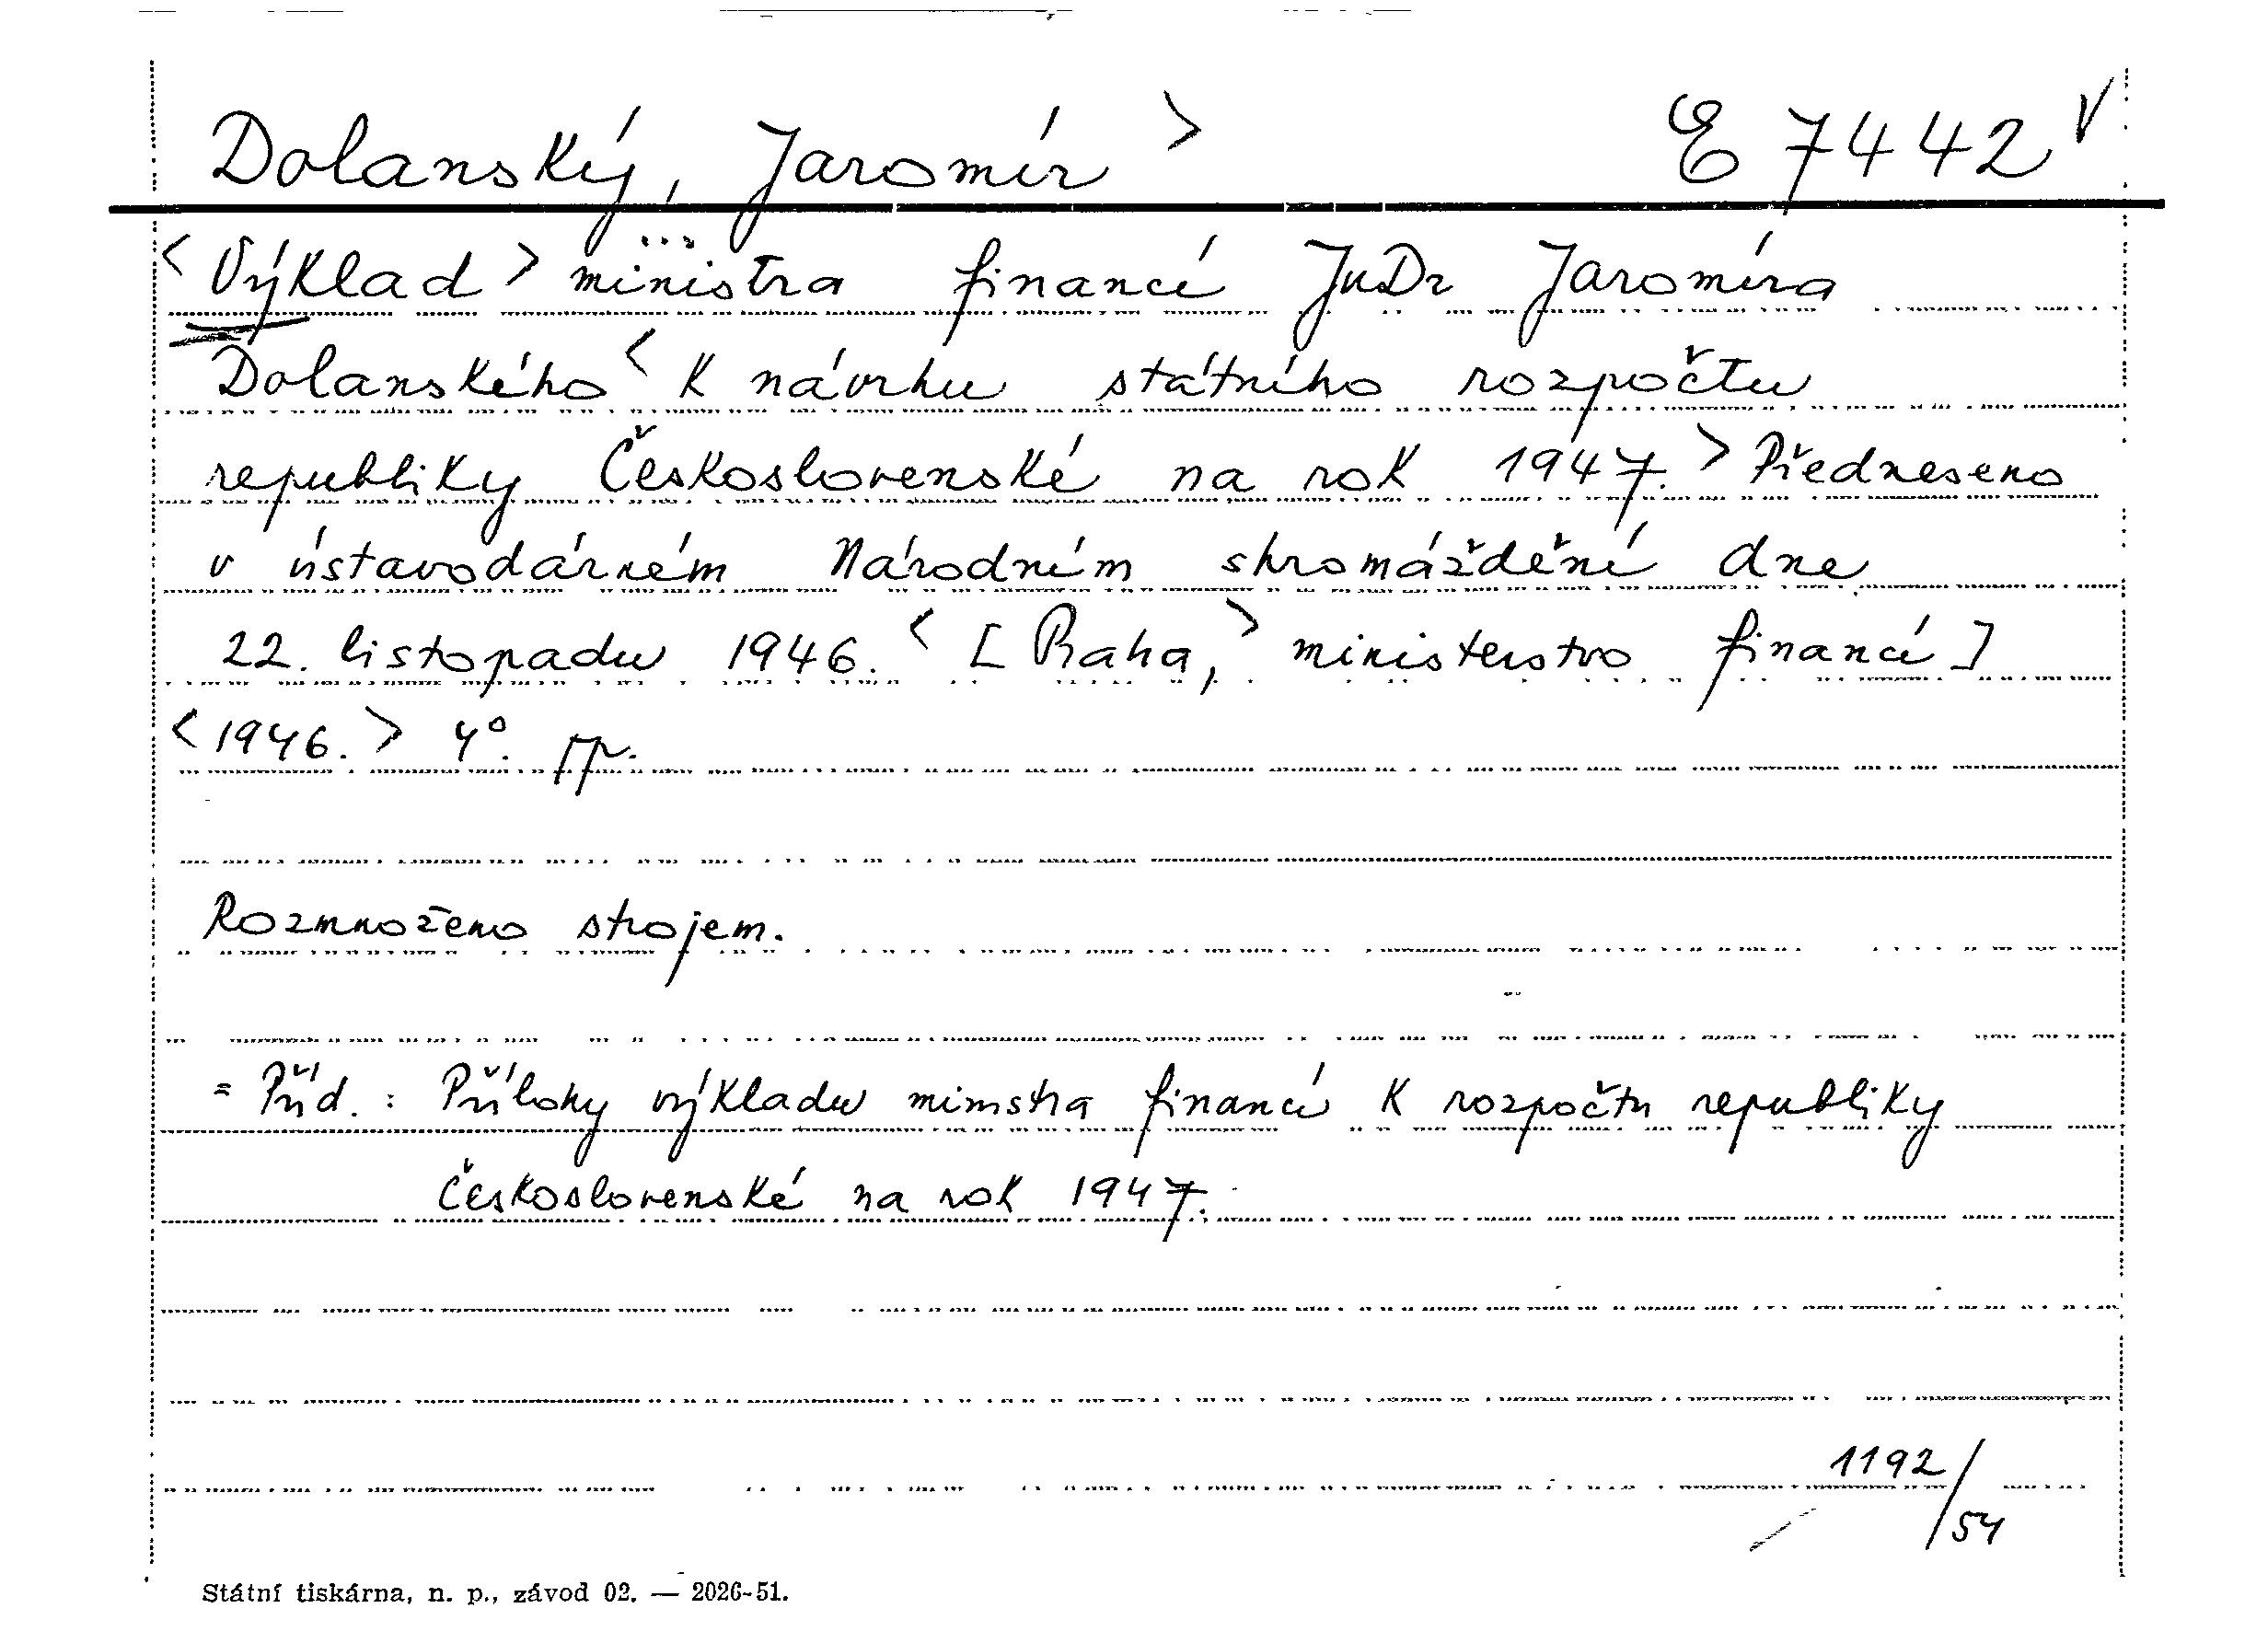 Dolanský, Jaromír > E 7442 V
< Výklad > ... ministra financí JuDr Jaromíra
Dolanského < k návrhu státního rozpočtu
republiky Československé na rok 1947. > Předneseno
v ústavodárném Národním shromáždění dne
22. listopadu 1946. < [ Praha, > ministerstvo financí ]
< 1946. > 4°. rp.
Rozmnoženo strojem.
= Příd. : Přílohy výkladu ministra financí k rozpočtu republiky
Československé na rok 1947.
1192/54
Státní tiskárna, n. p., závod 02. — 2026-51.